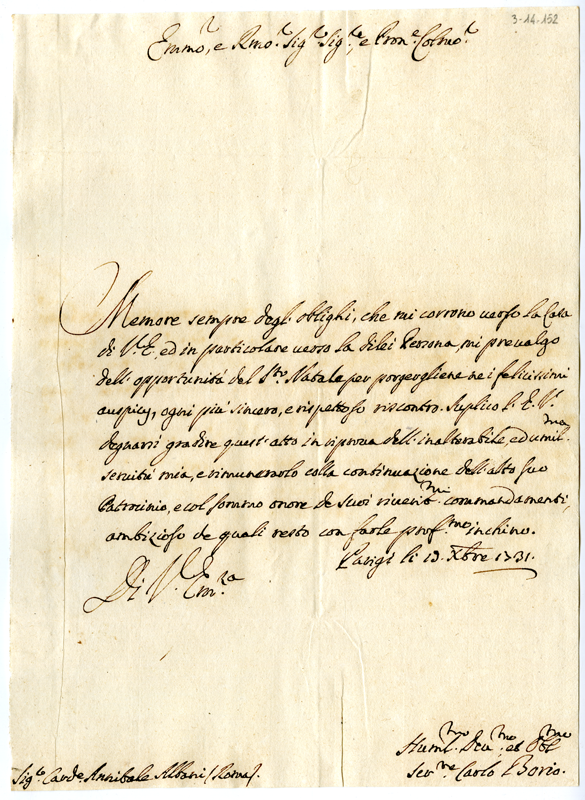 3-14-152
Emmo, e Rmo. Sigr. Sigr., e Prone. Colmo.
Memore sempre degl'oblighi, che mi corrono verso la Casa
di V. E., ed in particolare verso la dilei Persona, mi prevalgo
dell'opportunità del Sto. Natale per porgergliene ne i felicissimi
auspicj, ogni più sincero, e rispettoso riscontro. Suplico l'E. V.
degnarsi gradire quest'atto in riprova dell'inalterabile, ed umilma.
servitù mia, e rimunerarlo colla continuazione dell'alto suo
Patrocinio, e col sommo onore de suoi riveritmi. commandamenti,
ambizioso de quali resto con farle profmo. inchino.
Parigi li 19. Xbre 1731.
Di V. Emza
Humilmo. Devmo. et Obblmo
Servre. Carlo Borio.
Sigr. Carde. Annibale Albani (Roma).